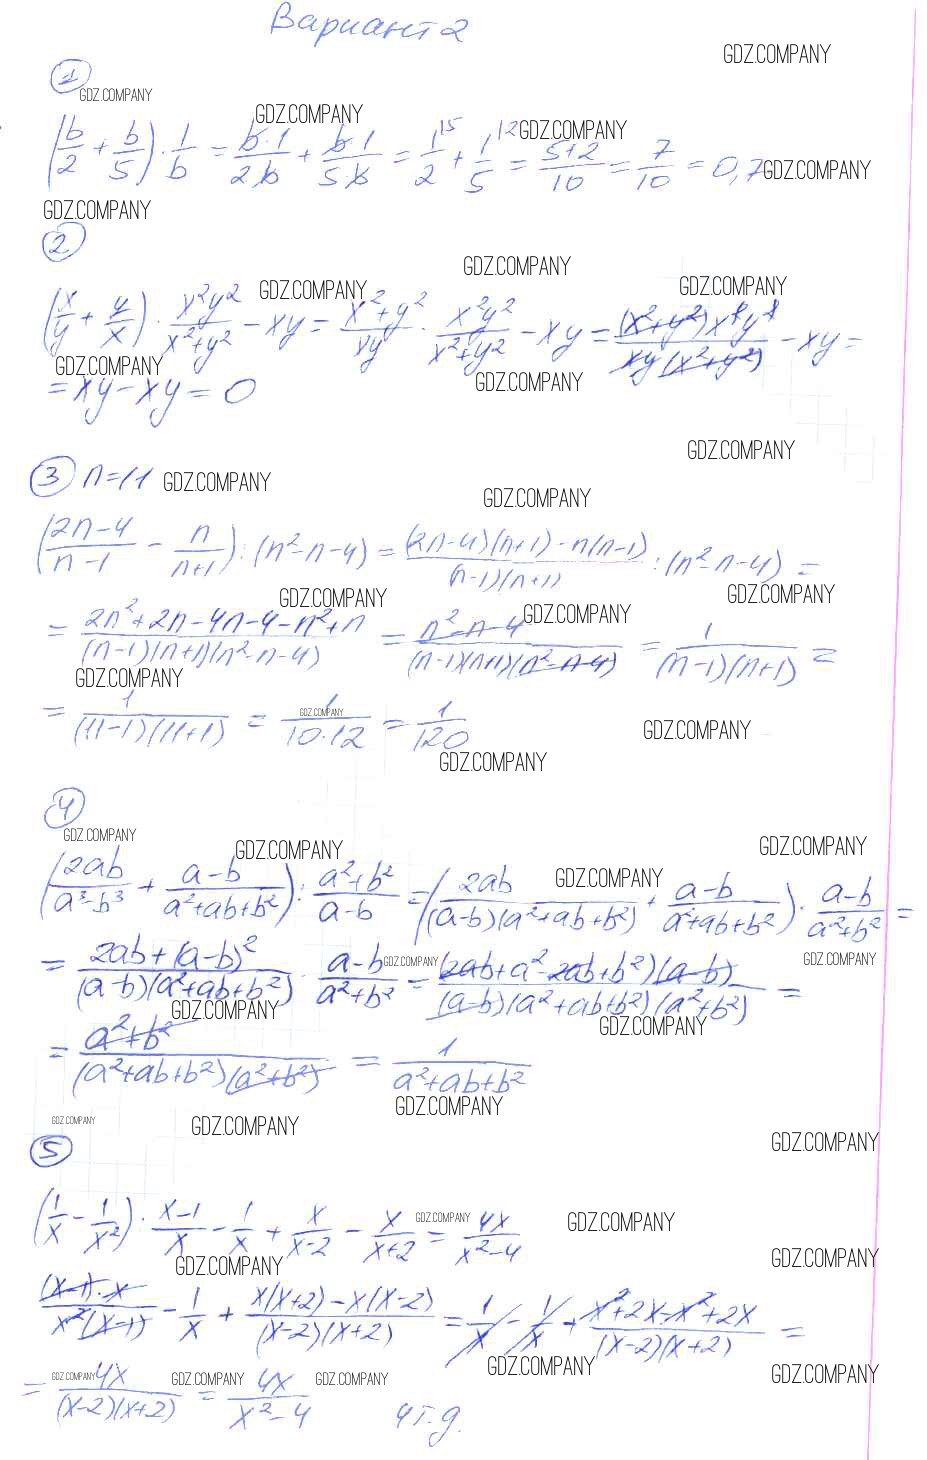 Вариант 2
GDZ.COMPANY
1
GDZ.COMPANY
GDZ.COMPANY
(b/2 + b/5) · 1/b = b·1/2b + b·1/5b = 1/2 \5 + 1/5 \2 = 5+2/10 = 7/10 = 0,7
GDZ.COMPANY
GDZ.COMPANY
GDZ.COMPANY
2
GDZ.COMPANY
GDZ.COMPANY
GDZ.COMPANY
(x/y + y/x) · x²y²/x²+y² - xy = x²+y²/xy · x²y²/x²+y² - xy = (x²+y²)x²y²/xy(x²+y²) - xy =
GDZ.COMPANY
GDZ.COMPANY
= xy - xy = 0
GDZ.COMPANY
3 n=11 GDZ.COMPANY
GDZ.COMPANY
(2n-4/n-1 - n/n+1) : (n²-n-4) = (2n-4)(n+1)-n(n-1)/(n-1)(n+1) : (n²-n-4) =
GDZ.COMPANY
GDZ.COMPANY
GDZ.COMPANY
= 2n²+2n-4n-4-n²+n/(n-1)(n+1)(n²-n-4) = n²-n-4/(n-1)(n+1)(n²-n-4) = 1/(n-1)(n+1) =
GDZ.COMPANY
= 1/(11-1)(11+1) = 1/10·12 = 1/120
GDZ.COMPANY
GDZ.COMPANY
GDZ.COMPANY
4
GDZ.COMPANY
GDZ.COMPANY
GDZ.COMPANY
(2ab/a³-b³ + a-b/a²+ab+b²) : a²+b²/a-b = (2ab/(a-b)(a²+ab+b²) + a-b/a²+ab+b²) · a-b/a²+b² =
GDZ.COMPANY
= 2ab+(a-b)²/(a-b)(a²+ab+b²) · a-b/a²+b² = (2ab+a²-2ab+b²)(a-b)/(a-b)(a²+ab+b²)(a²+b²) =
GDZ.COMPANY
GDZ.COMPANY
GDZ.COMPANY
GDZ.COMPANY
= a²+b²/(a²+ab+b²)(a²+b²) = 1/a²+ab+b²
GDZ.COMPANY
GDZ.COMPANY
GDZ.COMPANY
GDZ.COMPANY
5
(1/x - 1/x²) · x-1/x - 1/x + x/x-2 - x/x+2 = 4x/x²-4
GDZ.COMPANY
GDZ.COMPANY
GDZ.COMPANY
GDZ.COMPANY
(x-1)·x/x²(x-1) - 1/x + x(x+2)-x(x-2)/(x-2)(x+2) = 1/x - 1/x + x²+2x-x²+2x/(x-2)(x+2) =
GDZ.COMPANY
GDZ.COMPANY
GDZ.COMPANY
GDZ.COMPANY
GDZ.COMPANY
= 4x/(x-2)(x+2) = 4x/x²-4 ч.т.д.